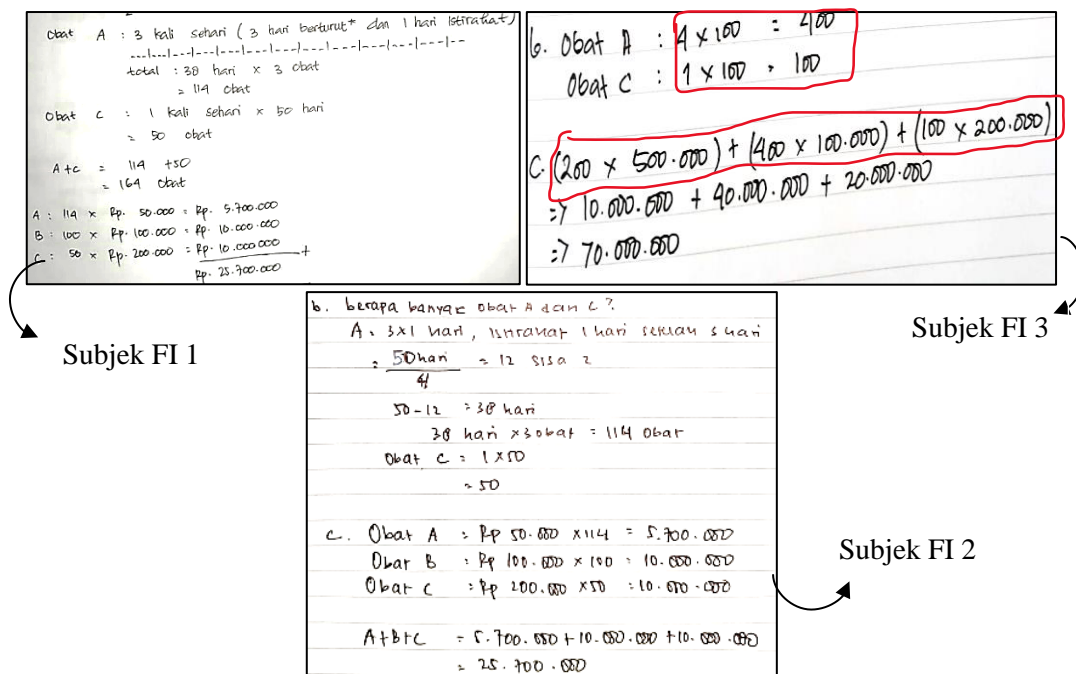 Obat A : 3 kali sehari ( 3 hari berturut² dan 1 hari istirahat)
---|---|---|---|---|---|---|---|---|---|---|---|--
total : 38 hari x 3 obat
= 114 obat
Obat C : 1 kali sehari x 50 hari
= 50 obat
A+C = 114 +50
= 164 obat
A : 114 x Rp. 50.000 = Rp. 5.700.000
B : 100 x Rp. 100.000 = Rp. 10.000.000
C : 50 x Rp. 200.000 = Rp. 10.000.000 +
Rp. 25.700.000
Subjek FI 1
b. Obat A : 4 x 100 = 400
Obat C : 1 x 100 = 100
C. (200 x 500.000) + (400 x 100.000) + (100 x 200.000)
=> 10.000.000 + 40.000.000 + 20.000.000
=> 70.000.000
Subjek FI 3
b. berapa banyak obat A dan C ?
A = 3x1 hari, istirahat 1 hari setelah 3 hari
= 50 hari / 4 = 12 sisa 2
50-12 = 38 hari
38 hari x 3 obat = 114 obat
Obat C = 1 x 50
= 50
c. Obat A : Rp 50.000 x 114 = 5.700.000
Obat B : Rp 100.000 x 100 : 10.000.000
Obat C : Rp 200.000 x 50 : 10.000.000
A+B+C = 5.700.000 + 10.000.000 + 10.000.000
= 25.700.000
Subjek FI 2